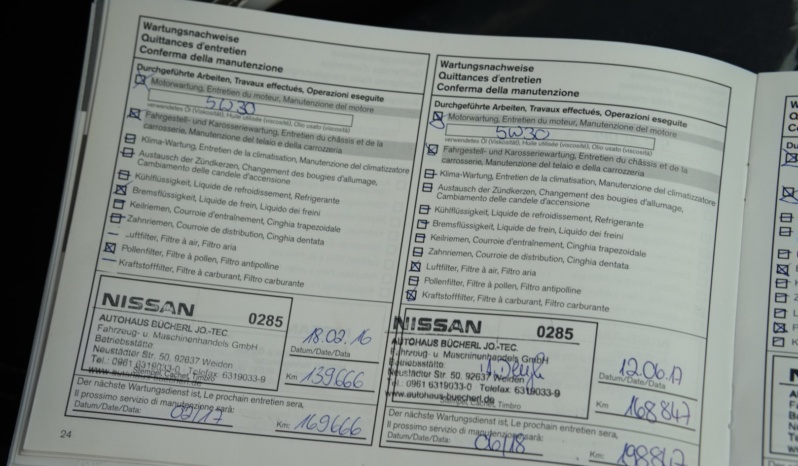 Wartungsnachweise
Quittances d'entretien
Conferma della manutenzione
Durchgeführte Arbeiten, Travaux effectués, Operazioni eseguite
Motorwartung, Entretien du moteur, Manutenzione del motore
5W30
verwendetes Öl (Viskosität), Huile utilisée (viscosité), Olio usato (viscosità)
Fahrgestell- und Karosseriewartung, Entretien du châssis et de la
carrosserie, Manutenzione del telaio e della carrozzeria
Klima-Wartung, Entretien de la climatisation, Manutenzione del climatizzatore
Austausch der Zündkerzen, Changement des bougies d'allumage,
Cambiamento delle candele d'accensione
Kühlflüssigkeit, Liquide de refroidissement, Refrigerante
Bremsflüssigkeit, Liquide de frein, Liquido dei freini
Keilriemen, Courroie d'entraînement, Cinghia trapezoidale
Zahnriemen, Courroie de distribution, Cinghia dentata
Luftfilter, Filtre à air, Filtro aria
Pollenfilter, Filtre à pollen, Filtro antipolline
Kraftstofffilter, Filtre à carburant, Filtro carburante
NISSAN 0285
AUTOHAUS BÜCHERL JO.-TEC.
Fahrzeug- u Muschinenhandels GmbH
Betriebsstätte
Neustädter Str. 50, 92637 Weiden
Tel.: 0961 6319033-0 Telefax 6319033-9
Stempel, Cachet, Timbro
18.02.16
Datum/Date/Data
Km 139666
Der nächste Wartungsdienst ist, Le prochain entretien sera,
Il prossimo servizio di manutenzione sarà:
Datum/Date/Data: 02/17 Km: 169666
24
Wartungsnachweise
Quittances d'entretien
Conferma della manutenzione
Durchgeführte Arbeiten, Travaux effectués, Operazioni eseguite
Motorwartung, Entretien du moteur, Manutenzione del motore
5W30
verwendetes Öl (Viskosität), Huile utilisée (viscosité), Olio usato (viscosità)
Fahrgestell- und Karosseriewartung, Entretien du châssis et de la
carrosserie, Manutenzione del telaio e della carrozzeria
Klima-Wartung, Entretien de la climatisation, Manutenzione del climatizzatore
Austausch der Zündkerzen, Changement des bougies d'allumage,
Cambiamento delle candele d'accensione
Kühlflüssigkeit, Liquide de refroidissement, Refrigerante
Bremsflüssigkeit, Liquide de frein, Liquido dei freini
Keilriemen, Courroie d'entraînement, Cinghia trapezoidale
Zahnriemen, Courroie de distribution, Cinghia dentata
Luftfilter, Filtre à air, Filtro aria
Pollenfilter, Filtre à pollen, Filtro antipolline
Kraftstofffilter, Filtre à carburant, Filtro carburante
NISSAN 0285
AUTOHAUS BÜCHERL JO.-TEC.
Fahrzeug- u Muschinenhandels GmbH
Betriebsstätte
Neustädter Str. 50, 92637 Weiden
Tel.: 0961 6319033-0 Telefax 6319033-9
www.autohaus-buecherl.de
Stempel, Cachet, Timbro
12.06.17
Datum/Date/Data
Km 168847
Der nächste Wartungsdienst ist, Le prochain entretien sera,
Il prossimo servizio di manutenzione sarà:
Datum/Date/Data: 06/18 Km: 198847